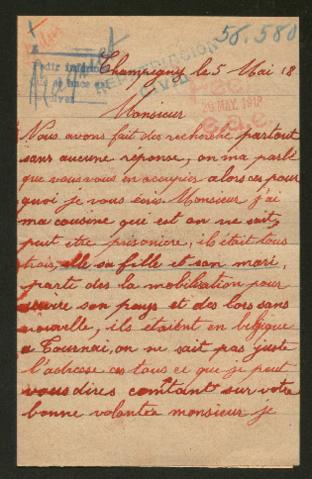 56.580
RAPATRIATION
CIVIL
Champigny le 5 Mai 18
REÇU
29 MAY. 1918
Monsieur
Nous avons fait des recherche partout
sans aucune réponse, on ma parlé
que vous vous en occupiez alors ces pour
quoi je vous ecris. Monsieur j'ai
ma cousine qui est on ne sait
peut être prisonière, ils était tous
trois, elle sa fille et son mari,
partit des la mobilisation pour
suivre son pays et des lors sans
nouvelle, ils étaitent en belgique
a Tournai, on ne sait pas juste
l'adresse ces tous ce que je peut
vous dires comptant sur votre
bonne volontée monsieur je